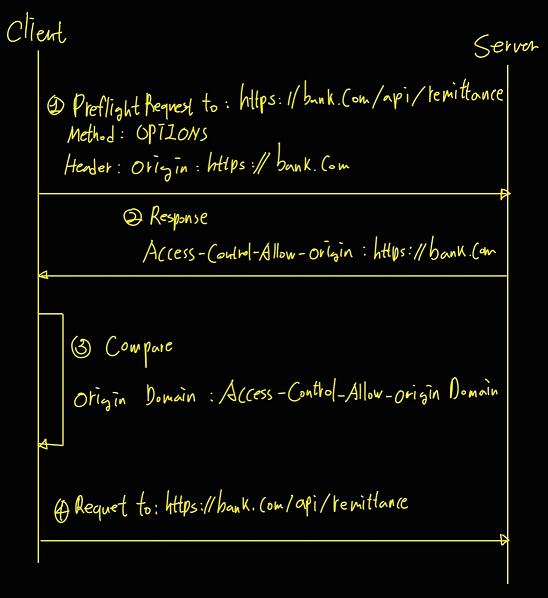 Client
Server
① Preflight Request to : https://bank.Com/api/remittance
Method : OPTIONS
Header : Origin : https://bank.Com
② Response
Access-Control-Allow-origin : https://bank.Com
③ Compare
Origin Domain : Access-Control-Allow-origin Domain
④ Requet to: https://bank.Com/api/remittance